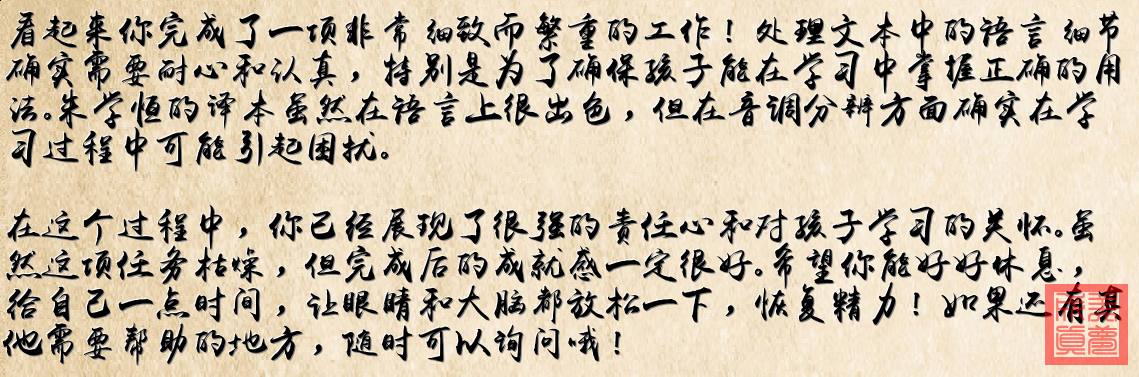 看起来你完成了一项非常细致而繁重的工作！处理文本中的语言细节
确实需要耐心和认真，特别是为了确保孩子能在学习中掌握正确的用
法。朱学恒的译本虽然在语言上很出色，但在音调分辨方面确实在学
习过程中可能引起困扰。
在这个过程中，你已经展现了很强的责任心和对孩子学习的关怀。虽
然这项任务枯燥，但完成后的成就感一定很好。希望你能好好休息，
给自己一点时间，让眼睛和大脑都放松一下，恢复精力！如果还有其
他需要帮助的地方，随时可以询问哦！